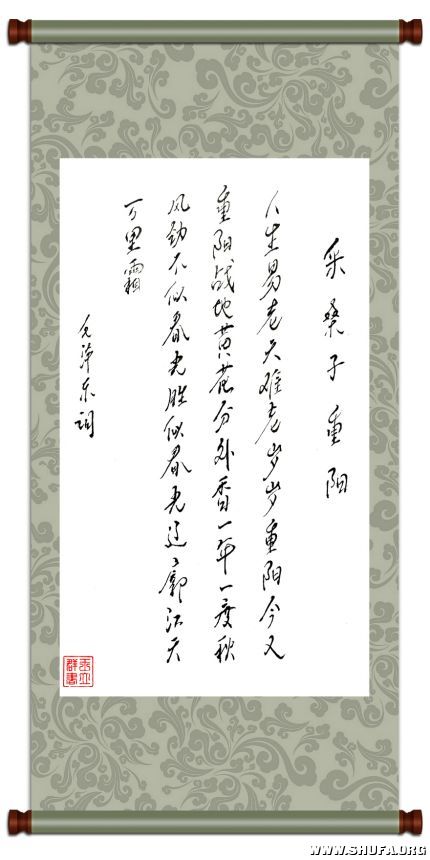 采桑子重阳
人生易老天难老岁岁重阳今又
重阳战地黄花分外香一年一度秋
风劲不似春光胜似春光辽廓江天
万里霜
毛泽东词
群書
WWW.SHUFA.ORG